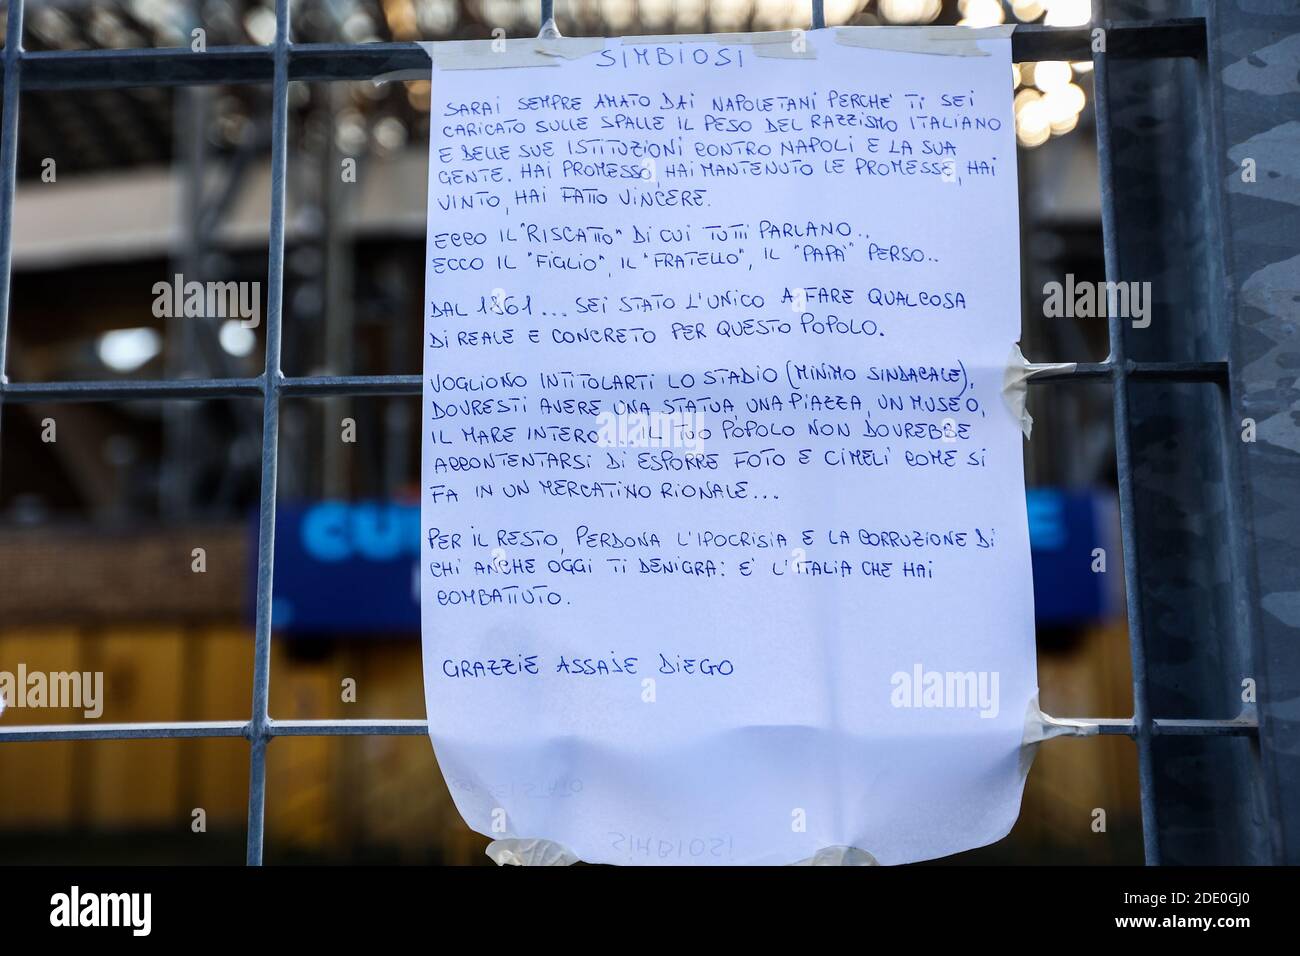 SIMBIOSI
SARAI SEMPRE AMATO DAI NAPOLETANI PERCHE' TI SEI
CARICATO SULLE SPALLE IL PESO DEL RAZZISMO ITALIANO
E DELLE SUE ISTITUZIONI CONTRO NAPOLI E LA SUA
GENTE. HAI PROMESSO, HAI MANTENUTO LE PROMESSE, HAI
VINTO, HAI FATTO VINCERE.
ECCO IL "RISCATTO" DI CUI TUTTI PARLANO..
ECCO IL "FIGLIO", IL "FRATELLO", IL "PAPÀ" PERSO..
DAL 1861... SEI STATO L'UNICO A FARE QUALCOSA
DI REALE E CONCRETO PER QUESTO POPOLO.
VOGLIONO INTITOLARTI LO STADIO (MINIMO SINDACALE),
DOVRESTI AVERE UNA STATUA, UNA PIAZZA, UN MUSEO,
IL MARE INTERO... IL TUO POPOLO NON DOVREBBE
ACCONTENTARSI DI ESPORRE FOTO E CIMELI COME SI
FA IN UN MERCATINO RIONALE...
PER IL RESTO, PERDONA L'IPOCRISIA E LA CORRUZIONE DI
CHI ANCHE OGGI TI DENIGRA: E' L'ITALIA CHE HAI
COMBATTUTO.
GRAZZIE ASSAJE DIEGO
SIMBIOSI
CU
E
a
alamy
alamy
Image ID: 2DE0GJ0
www.alamy.com